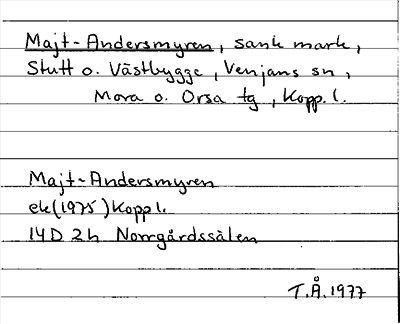 Majt-Andersmyren, sank mark,
Stutt o. Västbygge, Venjans sn,
Mora o. Orsa tg, Kopp. l.
Majt-Andersmyren
ek(1975) Kopp l.
14D 2h Norrgårdssälen
T.Å. 1977